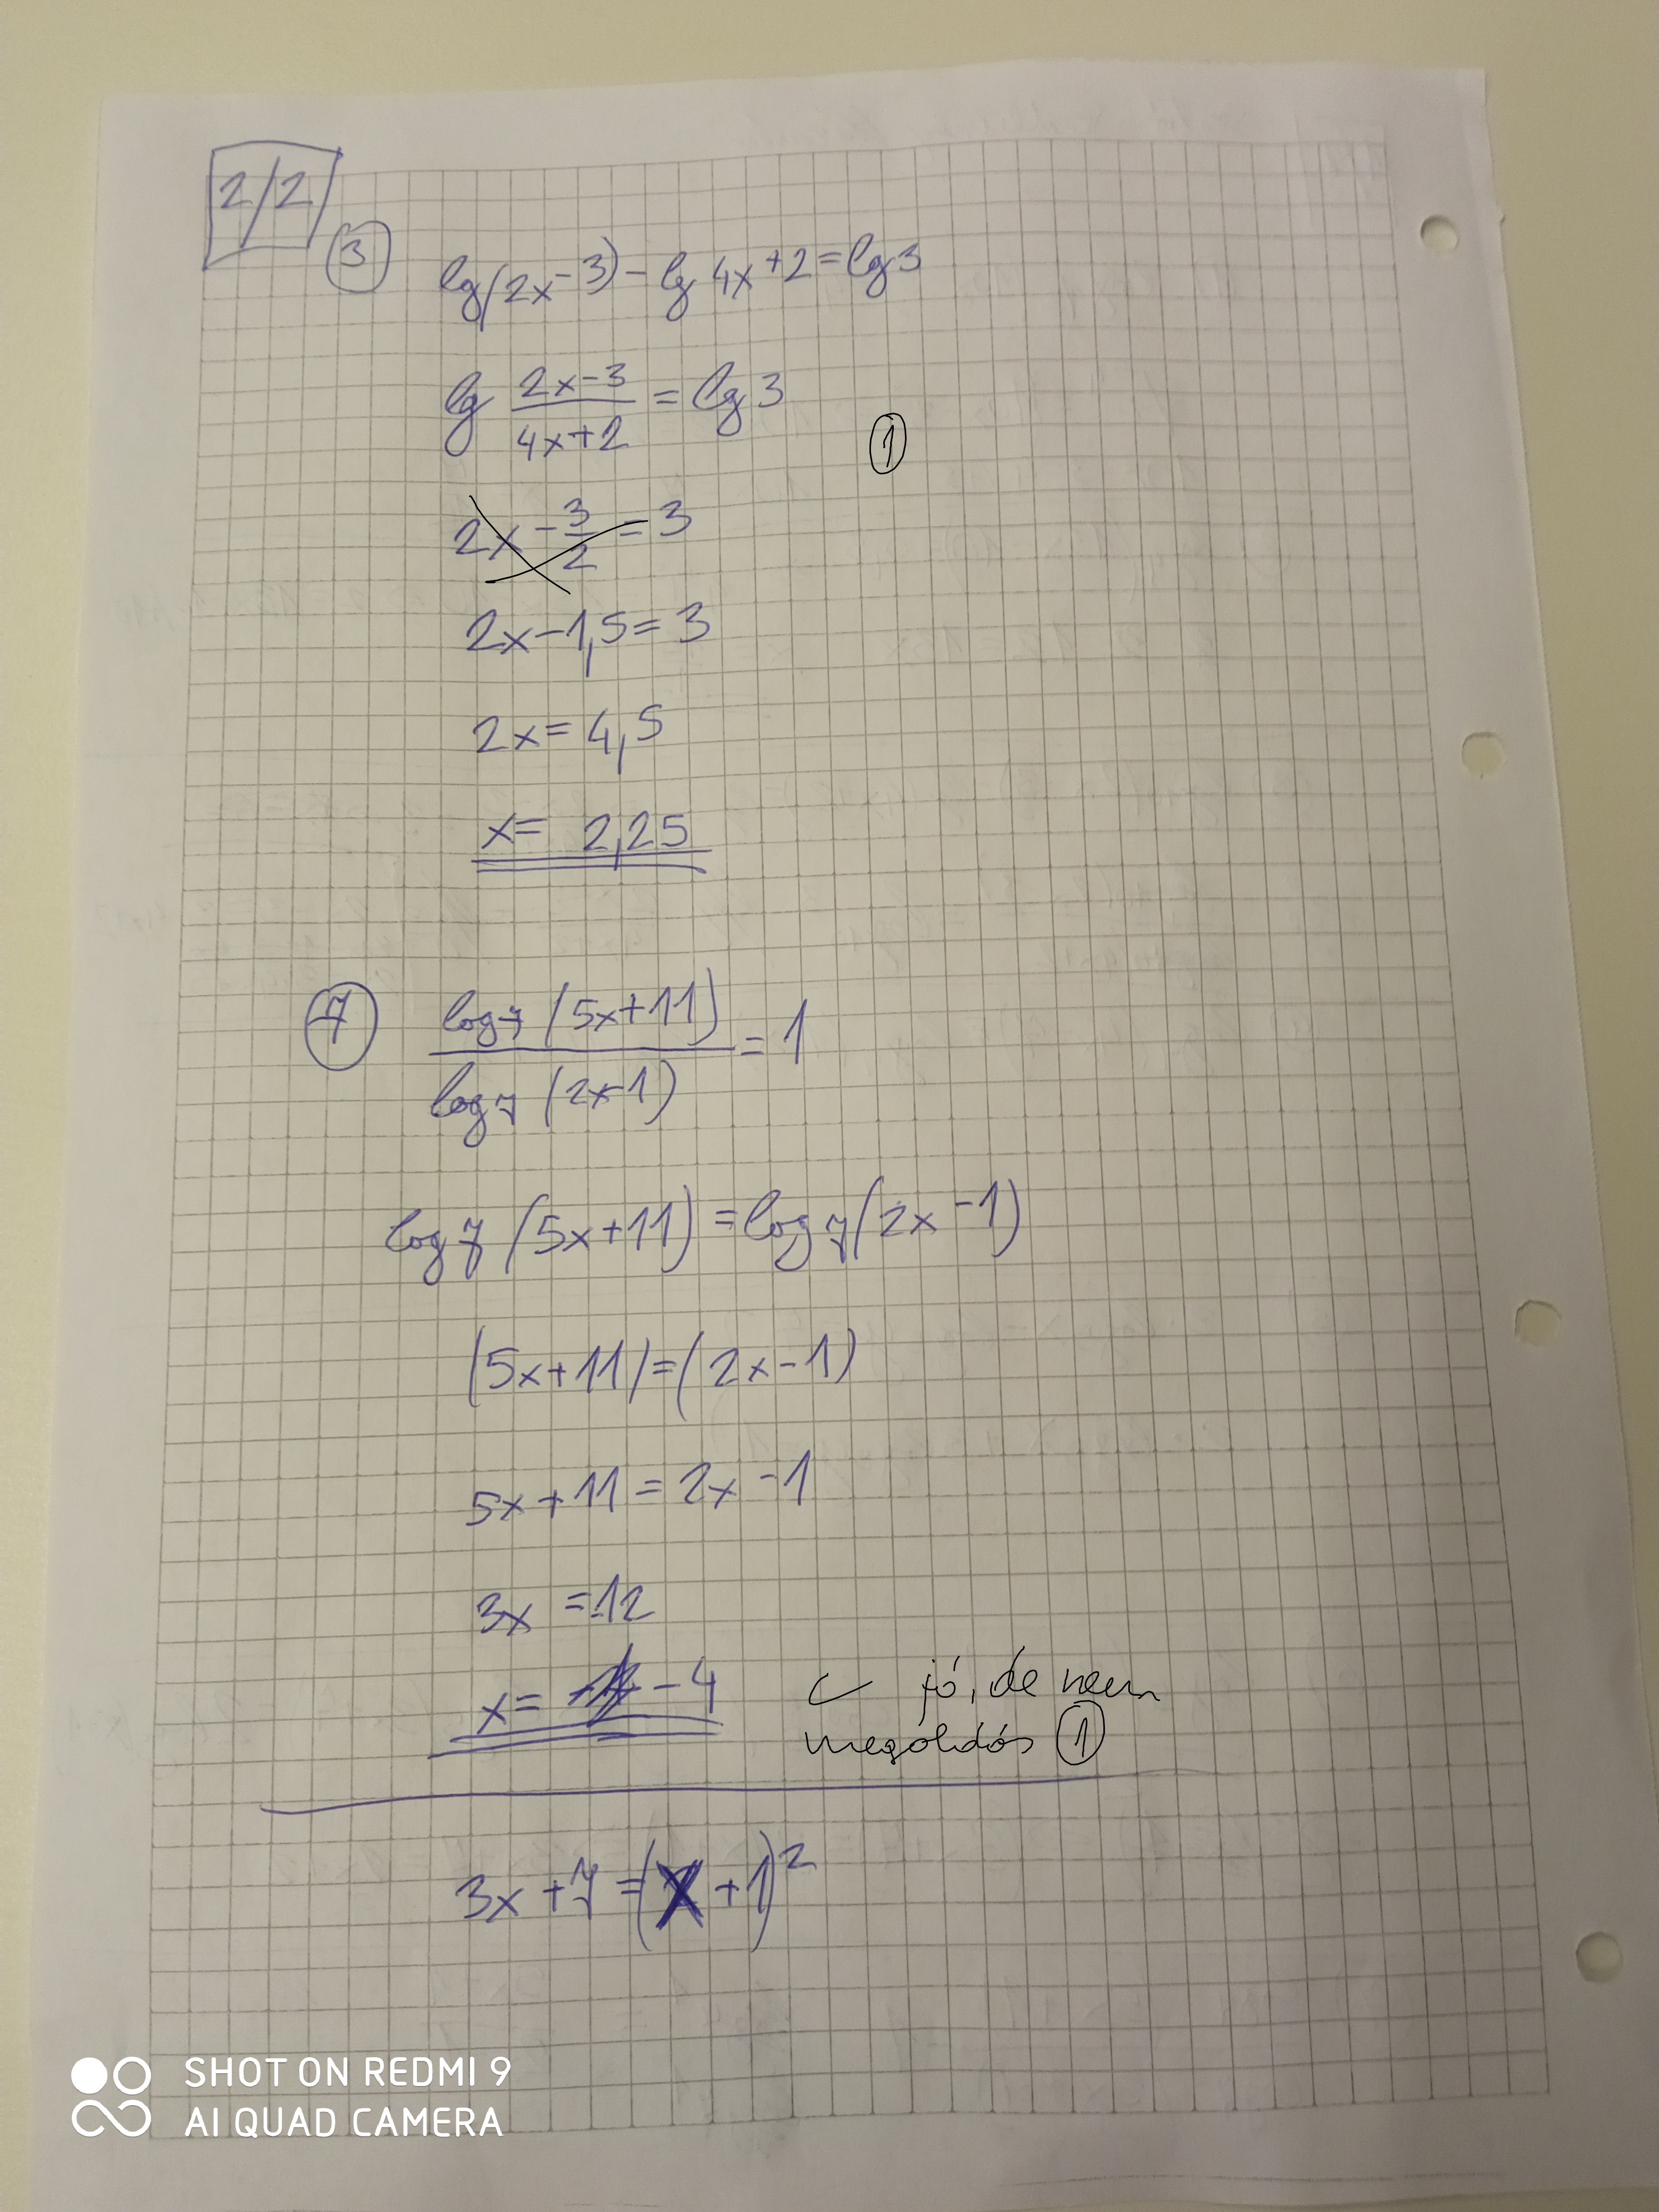 2/2
③ lg(2x-3)-lg 4x+2=lg3
lg (2x-3)/(4x+2) = lg 3
①
2x - 3/2 = 3
2x-1,5=3
2x=4,5
x= 2,25
⑦ log₇ (5x+11) / log₇ (2x-1) = 1
log₇ (5x+11) = log₇ (2x-1)
(5x+11)=(2x-1)
5x+11=2x-1
3x =-12
x= -4
jó, de nem
megoldás ①
3x+7=(x+1)²
SHOT ON REDMI 9
AI QUAD CAMERA